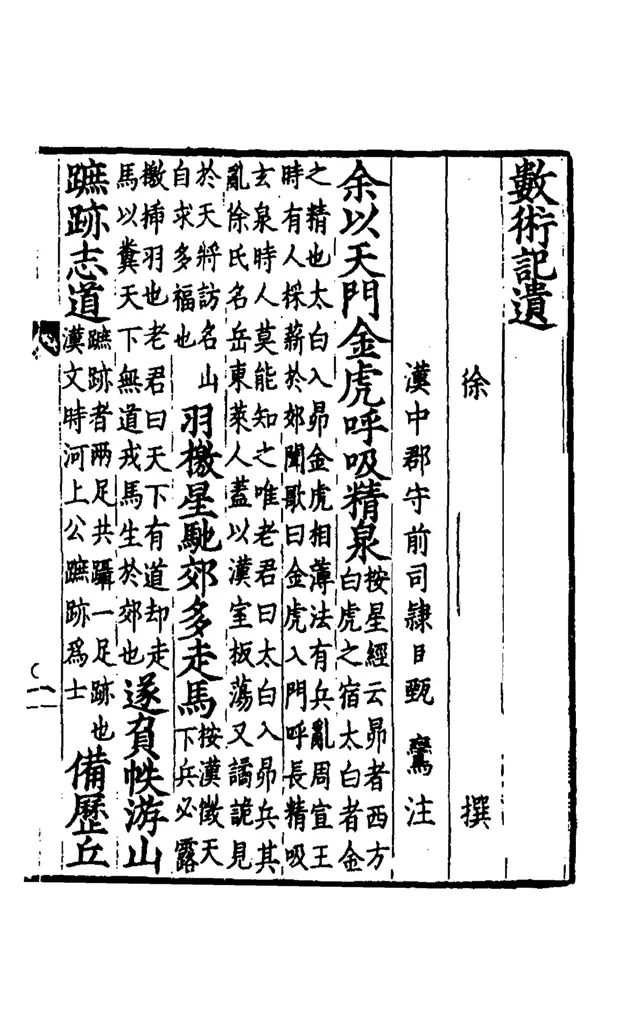 數術記遺
徐　撰
漢中郡守前司隸臣甄鸞注
余以天門金虎呼吸精泉按星經云昴者西方白虎之宿太白者金
之精也太白入昴金虎相薄法有兵亂周宣王
時有人採薪於郊聞歌曰金虎入門呼長精吸
玄泉時人莫能知之唯老君曰太白入昴兵其
亂徐氏名岳東萊人蓋以漢室板蕩又譎詭見
於天將訪名山自求多福也羽檄星馳郊多走馬按漢徵天下兵必露
檄揷羽也老君曰天下有道却走馬以糞天下無道戎馬生於郊也遂負帙游山
蹠跡志道蹠跡者兩足共躡一足跡也漢文時河上公蹠跡爲士備歷丘